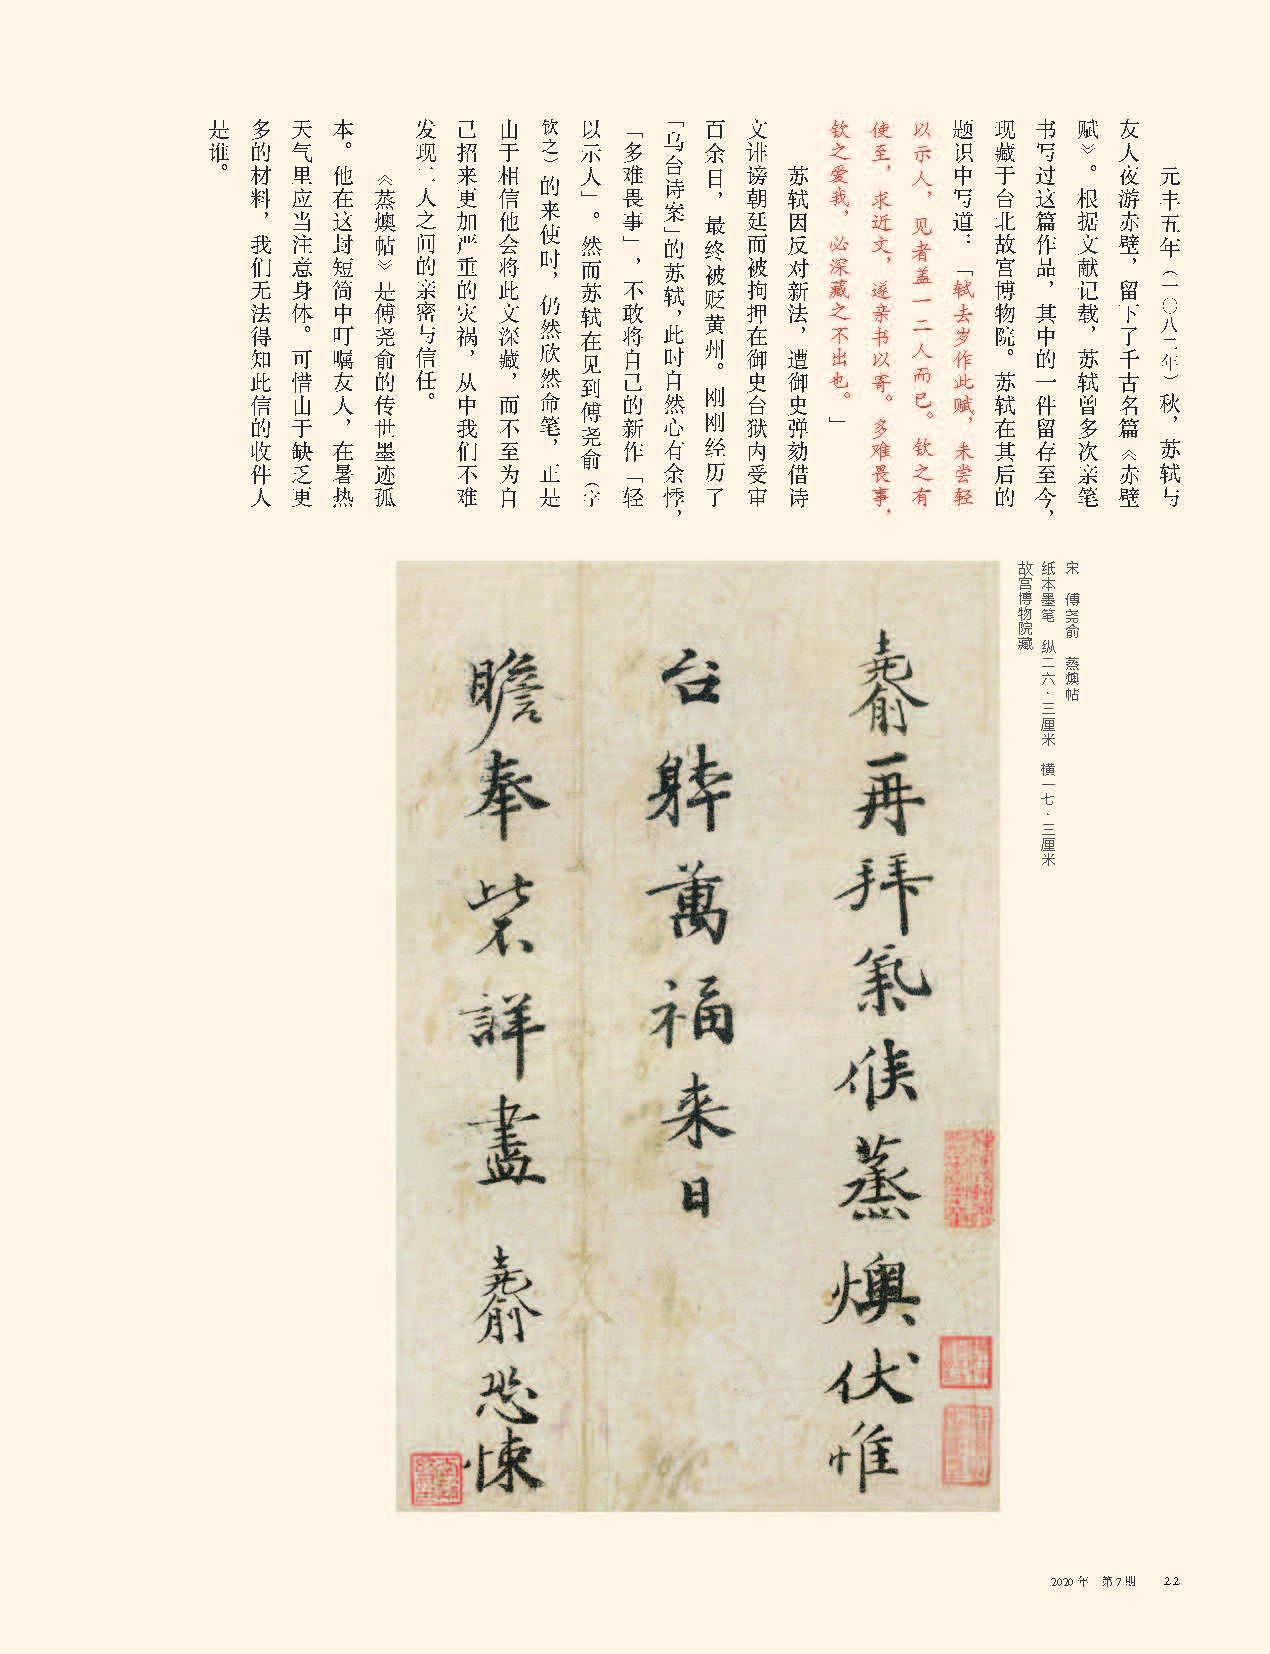 元丰五年（一〇八二年）秋，苏轼与
友人夜游赤壁，留下了千古名篇《赤壁
赋》。根据文献记载，苏轼曾多次亲笔
书写过这篇作品，其中的一件留存至今，
现藏于台北故宫博物院。苏轼在其后的
题识中写道：「轼去岁作此赋，未尝轻
以示人，见者盖一二人而已。钦之有
使至，求近文，遂亲书以寄。多难畏事，
钦之爱我，必深藏之不出也。」
苏轼因反对新法，遭御史弹劾借诗
文诽谤朝廷而被拘押在御史台狱内受审
百余日，最终被贬黄州。刚刚经历了
「乌台诗案」的苏轼，此时自然心有余悸，
「多难畏事」，不敢将自己的新作「轻
以示人」。然而苏轼在见到傅尧俞（字
钦之）的来使时，仍然欣然命笔，正是
出于相信他会将此文深藏，而不至为自
己招来更加严重的灾祸，从中我们不难
发现二人之间的亲密与信任。
《蒸燠帖》是傅尧俞的传世墨迹孤
本。他在这封短简中叮嘱友人，在暑热
天气里应当注意身体。可惜由于缺乏更
多的材料，我们无法得知此信的收件人
是谁。
宋　傅尧俞　蒸燠帖
纸本墨笔　纵二六·三厘米　横一七·三厘米
故宫博物院藏
堯俞再拜氣候蒸燠伏惟
台躰萬福来日
瞻奉此不詳盡 堯俞恐悚
2020年　第7期　22